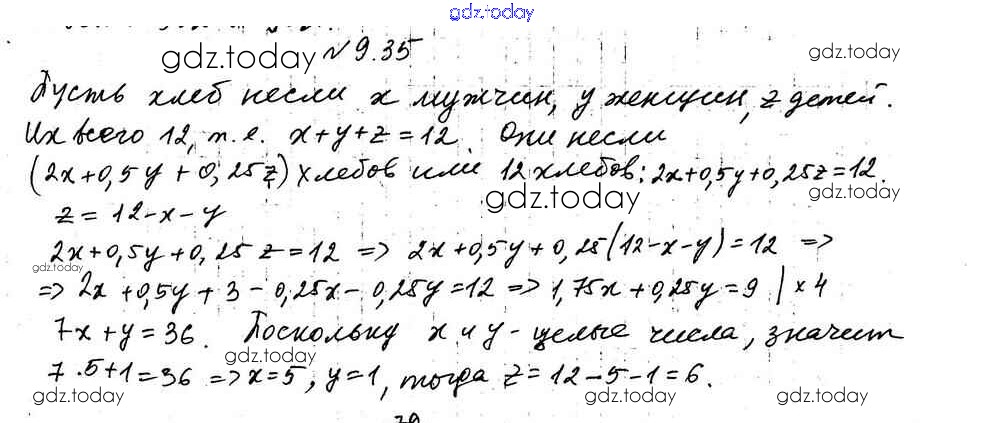 gdz.today
gdz.today № 9.35 gdz.today
Пусть хлеб несли x мужчин, y женщин, z детей.
Их всего 12, т.е. x+y+z=12. Они несли
(2x+0,5y+0,25z) хлебов или 12 хлебов: 2x+0,5y+0,25z=12.
gdz.today gdz.today
z=12-x-y
2x+0,5y+0,25z=12 => 2x+0,5y+0,25(12-x-y)=12 =>
gdz.today
=> 2x+0,5y+3-0,25x-0,25y=12 => 1,75x+0,25y=9 |×4
7x+y=36. Поскольку x и y - целые числа, значит
gdz.today gdz.today
7·5+1=36 => x=5, y=1, тогда z=12-5-1=6.
gdz.today gdz.today gdz.today